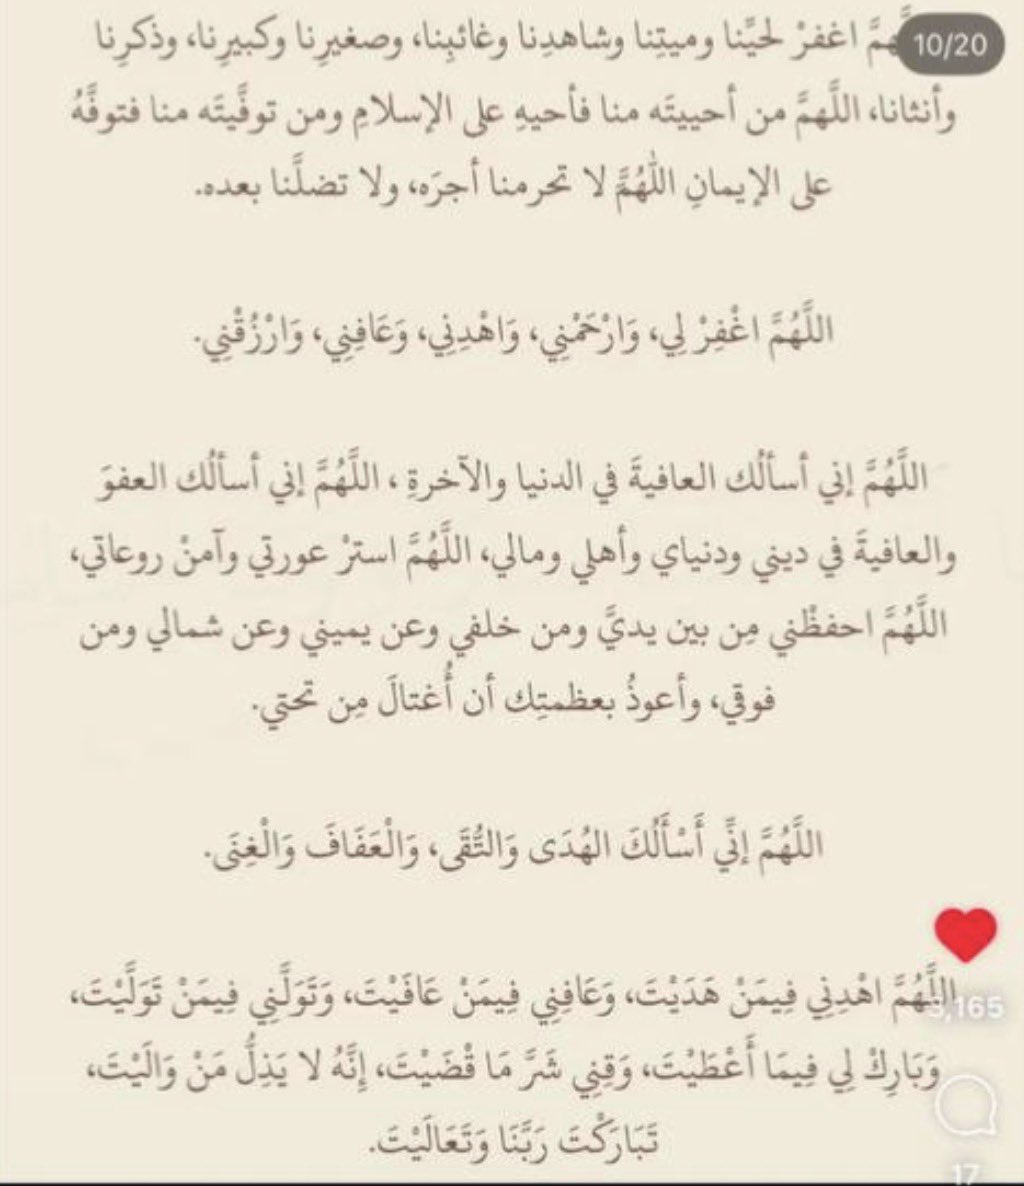 10/20
اغفرْ لحيِّنا وميتِنا وشاهدِنا وغائبِنا، وصغيرِنا وكبيرِنا، وذكرِنا
وأنثانا، اللَّهمَّ من أحييتَه منا فأحيهِ على الإسلامِ ومن توفَّيتَه منا فتوفَّهُ
على الإيمانِ اللَّهُمَّ لا تحرمنا أجرَه، ولا تضلَّنا بعده.
اللَّهُمَّ اغْفِرْ لِي، وَارْحَمْنِي، وَاهْدِنِي، وَعَافِنِي، وَارْزُقْنِي.
اللَّهُمَّ إني أسألُك العافيةَ في الدنيا والآخرةِ، اللَّهُمَّ إني أسألُك العفوَ
والعافيةَ في ديني ودنياي وأهلي ومالي، اللَّهُمَّ استرْ عورتي وآمنْ روعاتي،
اللَّهُمَّ احفظْني مِن بين يديَّ ومن خلفي وعن يميني وعن شمالي ومن
فوقي، وأعوذُ بعظمتِك أن أُغتالَ مِن تحتي.
اللَّهُمَّ إنِّي أَسْأَلُكَ الهُدَى وَالتُّقَى، وَالْعَفَافَ وَالْغِنَى.
اللَّهُمَّ اهْدِنِي فِيمَنْ هَدَيْتَ، وَعَافِنِي فِيمَنْ عَافَيْتَ، وَتَوَلَّنِي فِيمَنْ تَوَلَّيْتَ،
3,165
وَبَارِكْ لِي فِيمَا أَعْطَيْتَ، وَقِنِي شَرَّ مَا قْضَيْتَ، إِنَّهُ لا يَذِلُّ مَنْ وَالَيْتَ،
تَبَارَكْتَ رَبَّنَا وَتَعَالَيْتَ.
17